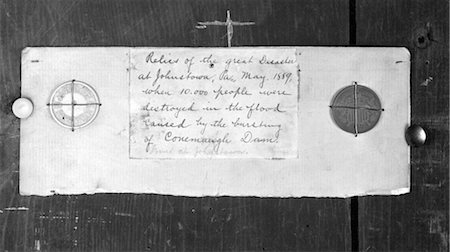 Relics of the great Disaster
at Johnstown, Pa, May. 1889,
when 10.000 people were
destroyed in the flood
caused by the bursting
of Conemaugh Dam.
Found at Johnstown.